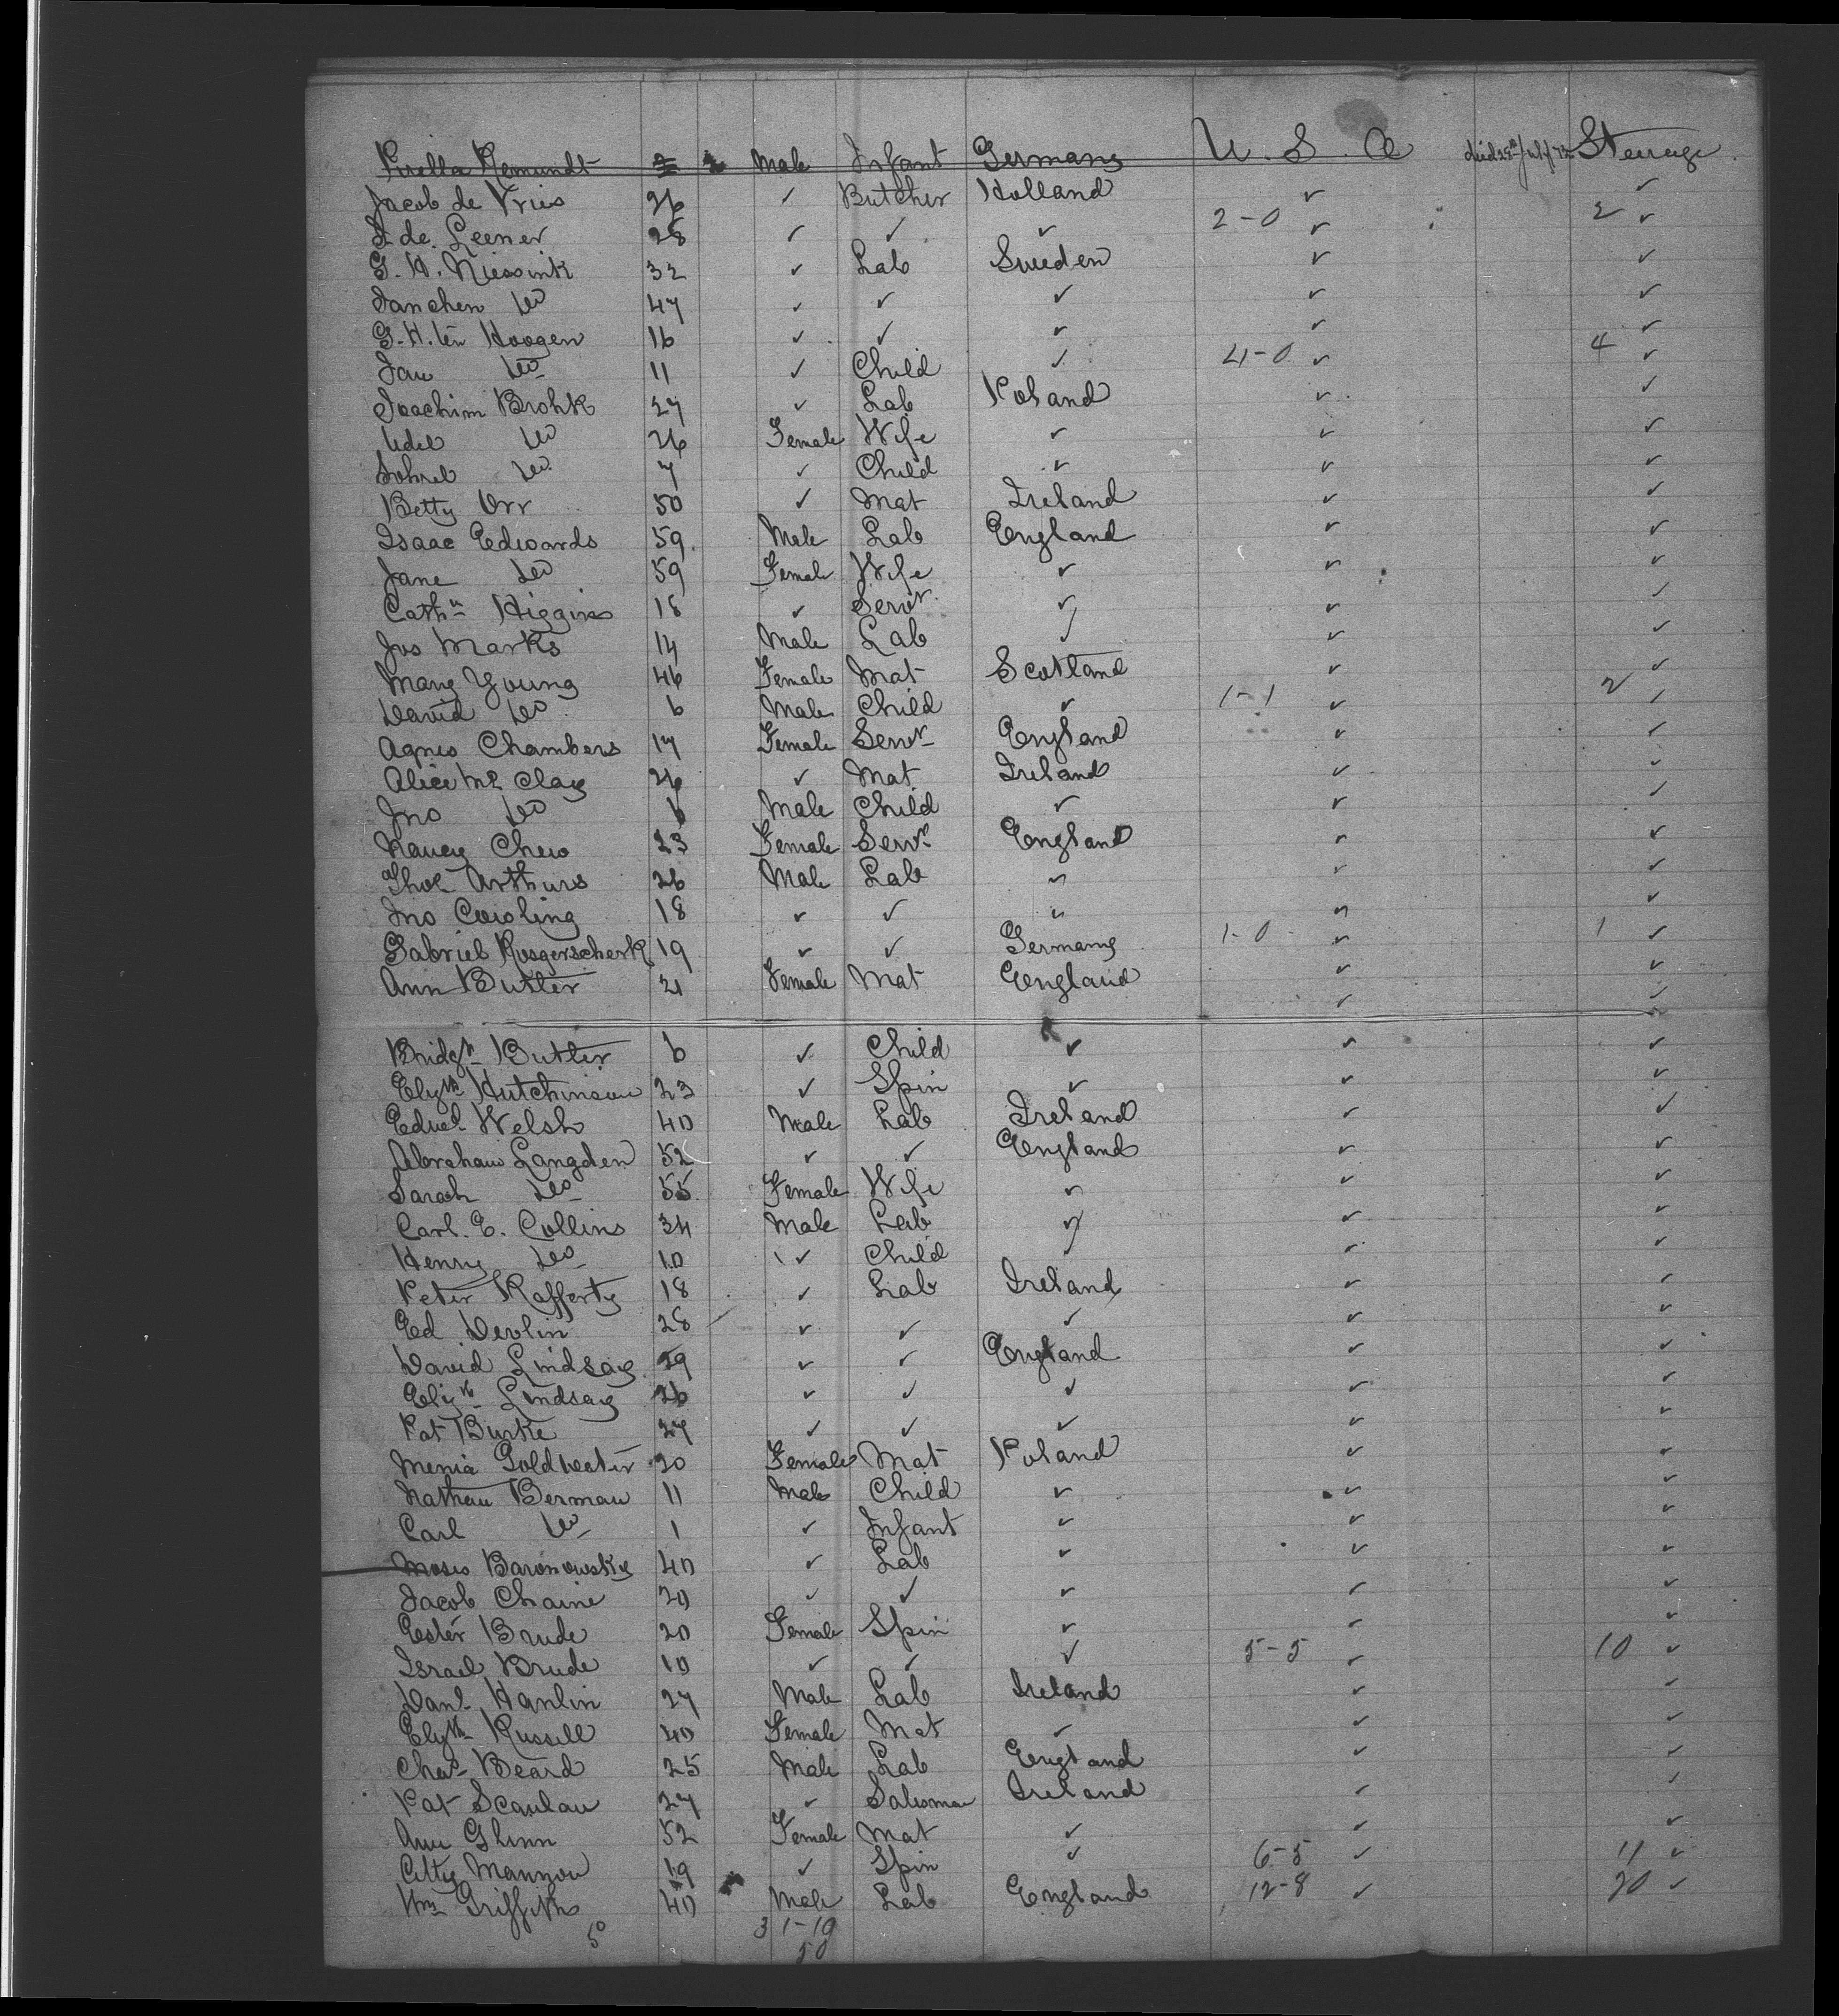 Male Infant Germany U.S.A died 29th July 72 Steerage
Jacob de Vries 26 ✓ Butcher Holland ✓ ✓
de Leener 28 ✓ ✓ ✓ 2-0 ✓ 2 ✓
G. H. Niessink 32 ✓ Lab Sweden ✓ ✓
Janchen Do 47 ✓ ✓ ✓ ✓ ✓
G. H. ten Hoogen 16 ✓ ✓ ✓ ✓ ✓
Jan Do 11 ✓ Child ✓ 4-0 ✓ 4 ✓
Joachim Brohk 27 ✓ Lab Poland ✓ ✓
Udel Do 26 Female Wife ✓ ✓ ✓
Do 7 ✓ Child ✓ ✓ ✓
Betty Orr 50 ✓ Mat Ireland ✓ ✓
Isaac Edwards 59 Male Lab England ✓ ✓
Jane Do 59 Female Wife ✓ ✓ ✓
Cathn Higgins 18 ✓ Servt ✓ ✓ ✓
Jos Marks 14 Male Lab ✓ ✓ ✓
Mary Young 46 Female Mat Scotland ✓ ✓
David Do 6 Male Child ✓ 1-1 ✓ 2 ✓
Agnes Chambers 17 Female Servt England ✓ ✓
Alice Mc Clay 26 ✓ Mat Ireland ✓ ✓
Jno Do 6 Male Child ✓ ✓ ✓
Nancy Chew 23 Female Servt England ✓ ✓
Thos Arthurs 26 Male Lab ✓ ✓ ✓
Jno Cowling 18 ✓ ✓ ✓ ✓ ✓
Gabriel 19 ✓ ✓ Germany 1-0 ✓ 1 ✓
Ann Butler 21 Female Mat England ✓ ✓
✓ ✓
Bridgt Butler 6 ✓ Child ✓ ✓ ✓
Elyth Hutchinson 23 ✓ Spin ✓ ✓ ✓
Edwd Welsh 40 Male Lab Ireland ✓ ✓
Abraham Langden 52 ✓ ✓ England ✓ ✓
Sarah Do 55 Female Wife ✓ ✓ ✓
Carl. E. Collins 34 Male Lab ✓ ✓ ✓
Henry Do 10 ✓ Child ✓ ✓
Peter Rafferty 18 ✓ Lab Ireland ✓ ✓
Ed Devlin 28 ✓ ✓ ✓ ✓ ✓
David Lindsay 29 ✓ ✓ England ✓ ✓
Elizth Lindsay 26 ✓ ✓ ✓ ✓ ✓
Pat Burke 27 ✓ ✓ ✓ ✓ ✓
Menia Goldwater 20 Female Mat Poland ✓ ✓
Nathan Berman 11 Male Child ✓ ✓ ✓
Carl Do 1 ✓ Infant ✓ ✓ ✓
Moses Baronowsky 40 ✓ Lab ✓ ✓ ✓
Jacob Chaine 20 ✓ ✓ ✓ ✓ ✓
Ester Brude 20 Female Spin ✓ ✓ ✓
Israel Brude 10 ✓ ✓ ✓ 5-5 ✓ 10 ✓
Danl Hanlin 27 Male Lab Ireland ✓ ✓
Elyth Russell 40 Female Mat ✓ ✓ ✓
Chas Beard 25 Male Lab England ✓ ✓
Pat Scanlan 27 ✓ Salesman Ireland ✓ ✓
Ann Glinn 52 Female Mat ✓ ✓ ✓
Mannon 19 ✓ Spin ✓ 6-5 ✓ 11 ✓
Wm Griffiths 40 Male Lab England 12-8 ✓ 20 ✓
50 31-19
50